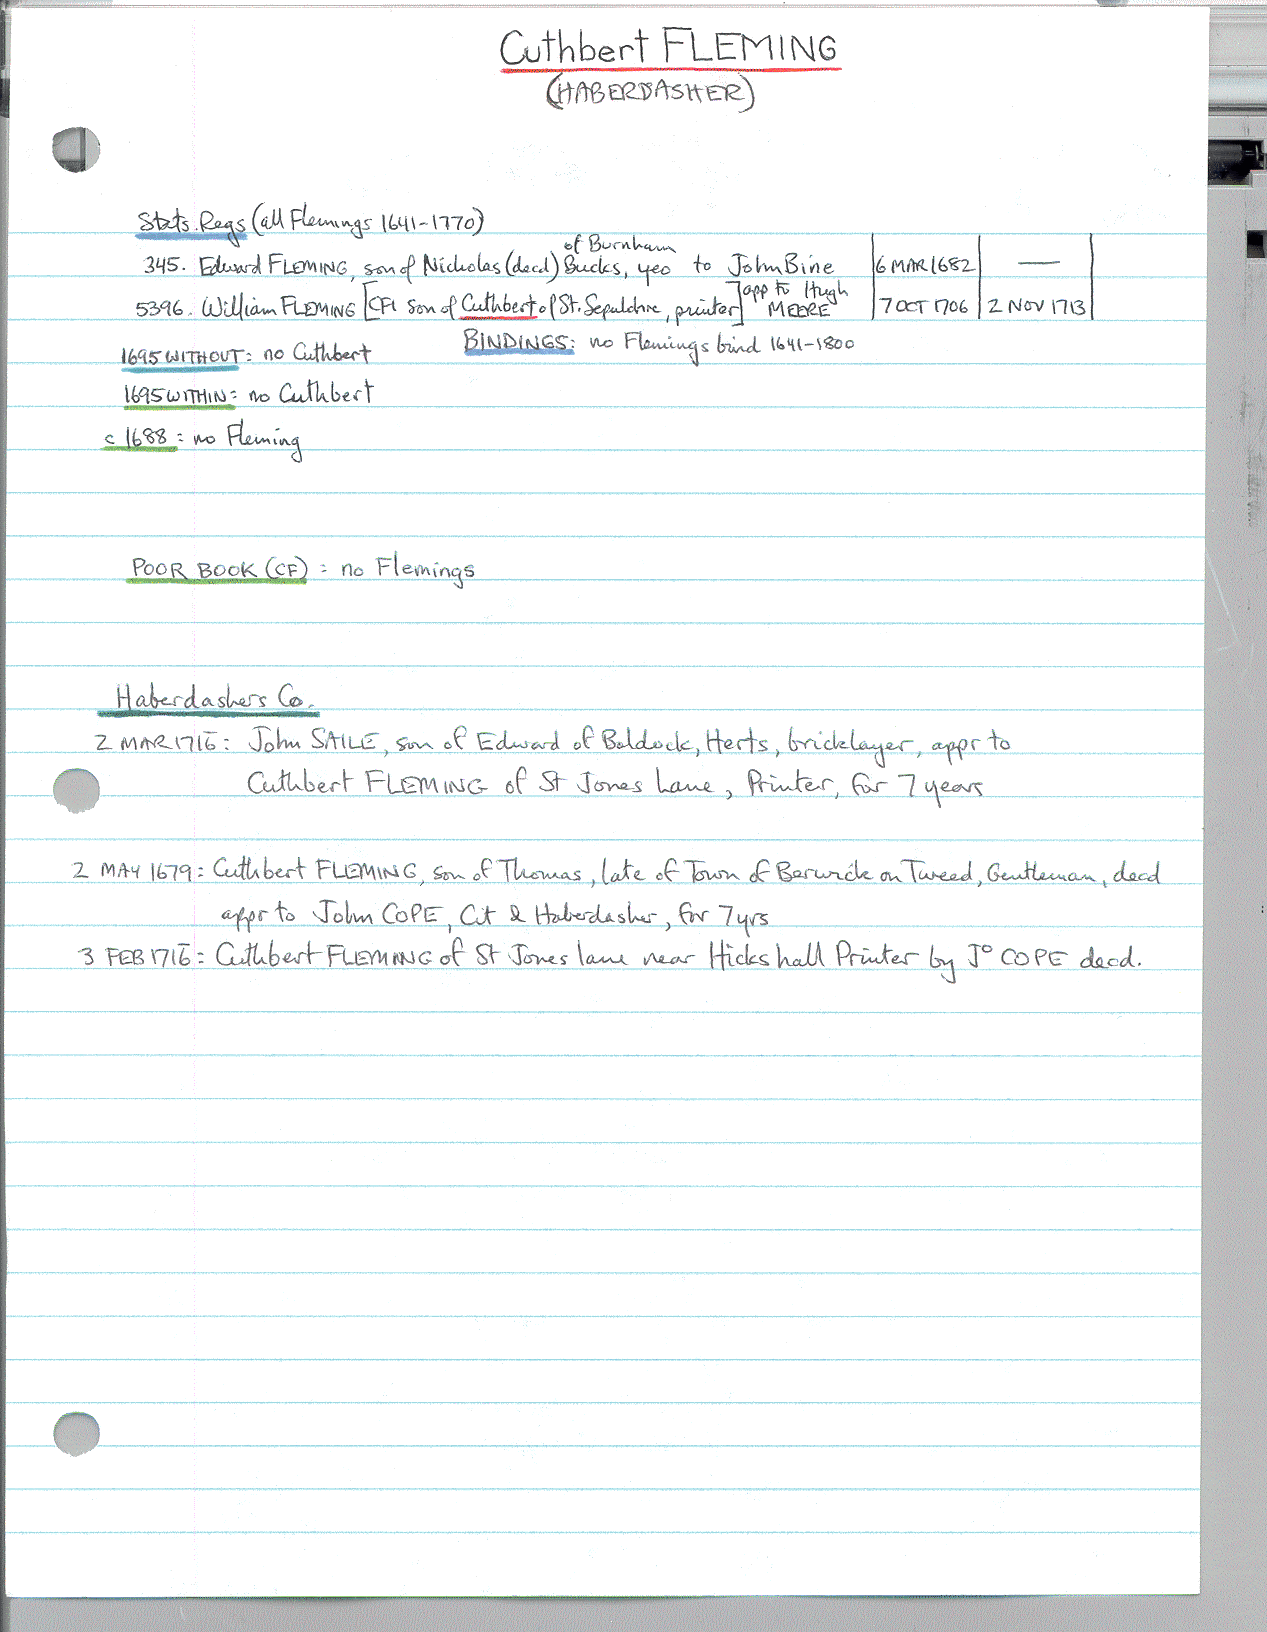 Cuthbert FLEMING
(HABERDASHER)
Stats. Regs (all Flemings 1641-1770)
of Burnham
345. Edward FLEMING, son of Nicholas (decd) Bucks, yeo to John Bine 6 MAR 1682 —
5396. William FLEMING [CFI son of Cuthbert of St. Sepulchre, printer] app to Hugh MEERE 7 OCT 1706 2 NOV 1713
BINDINGS: no Flemings bind 1641-1800
1695 WITHOUT: no Cuthbert
1695 WITHIN: no Cuthbert
c 1688: no Fleming
POOR BOOK (CF): no Flemings
Haberdashers Co.
2 MAR 1716: John SAILE, son of Edward of Baldock, Herts, bricklayer, appr to
Cuthbert FLEMING of St Jones Lane, Printer, for 7 years
2 MAY 1679: Cuthbert FLEMING, son of Thomas, late of Town of Berwick on Tweed, Gentleman, decd
appr to John COPE, Cit & Haberdasher, for 7 yrs
3 FEB 1716: Cuthbert FLEMING of St Jones lane near Hicks hall Printer by Jo COPE decd.